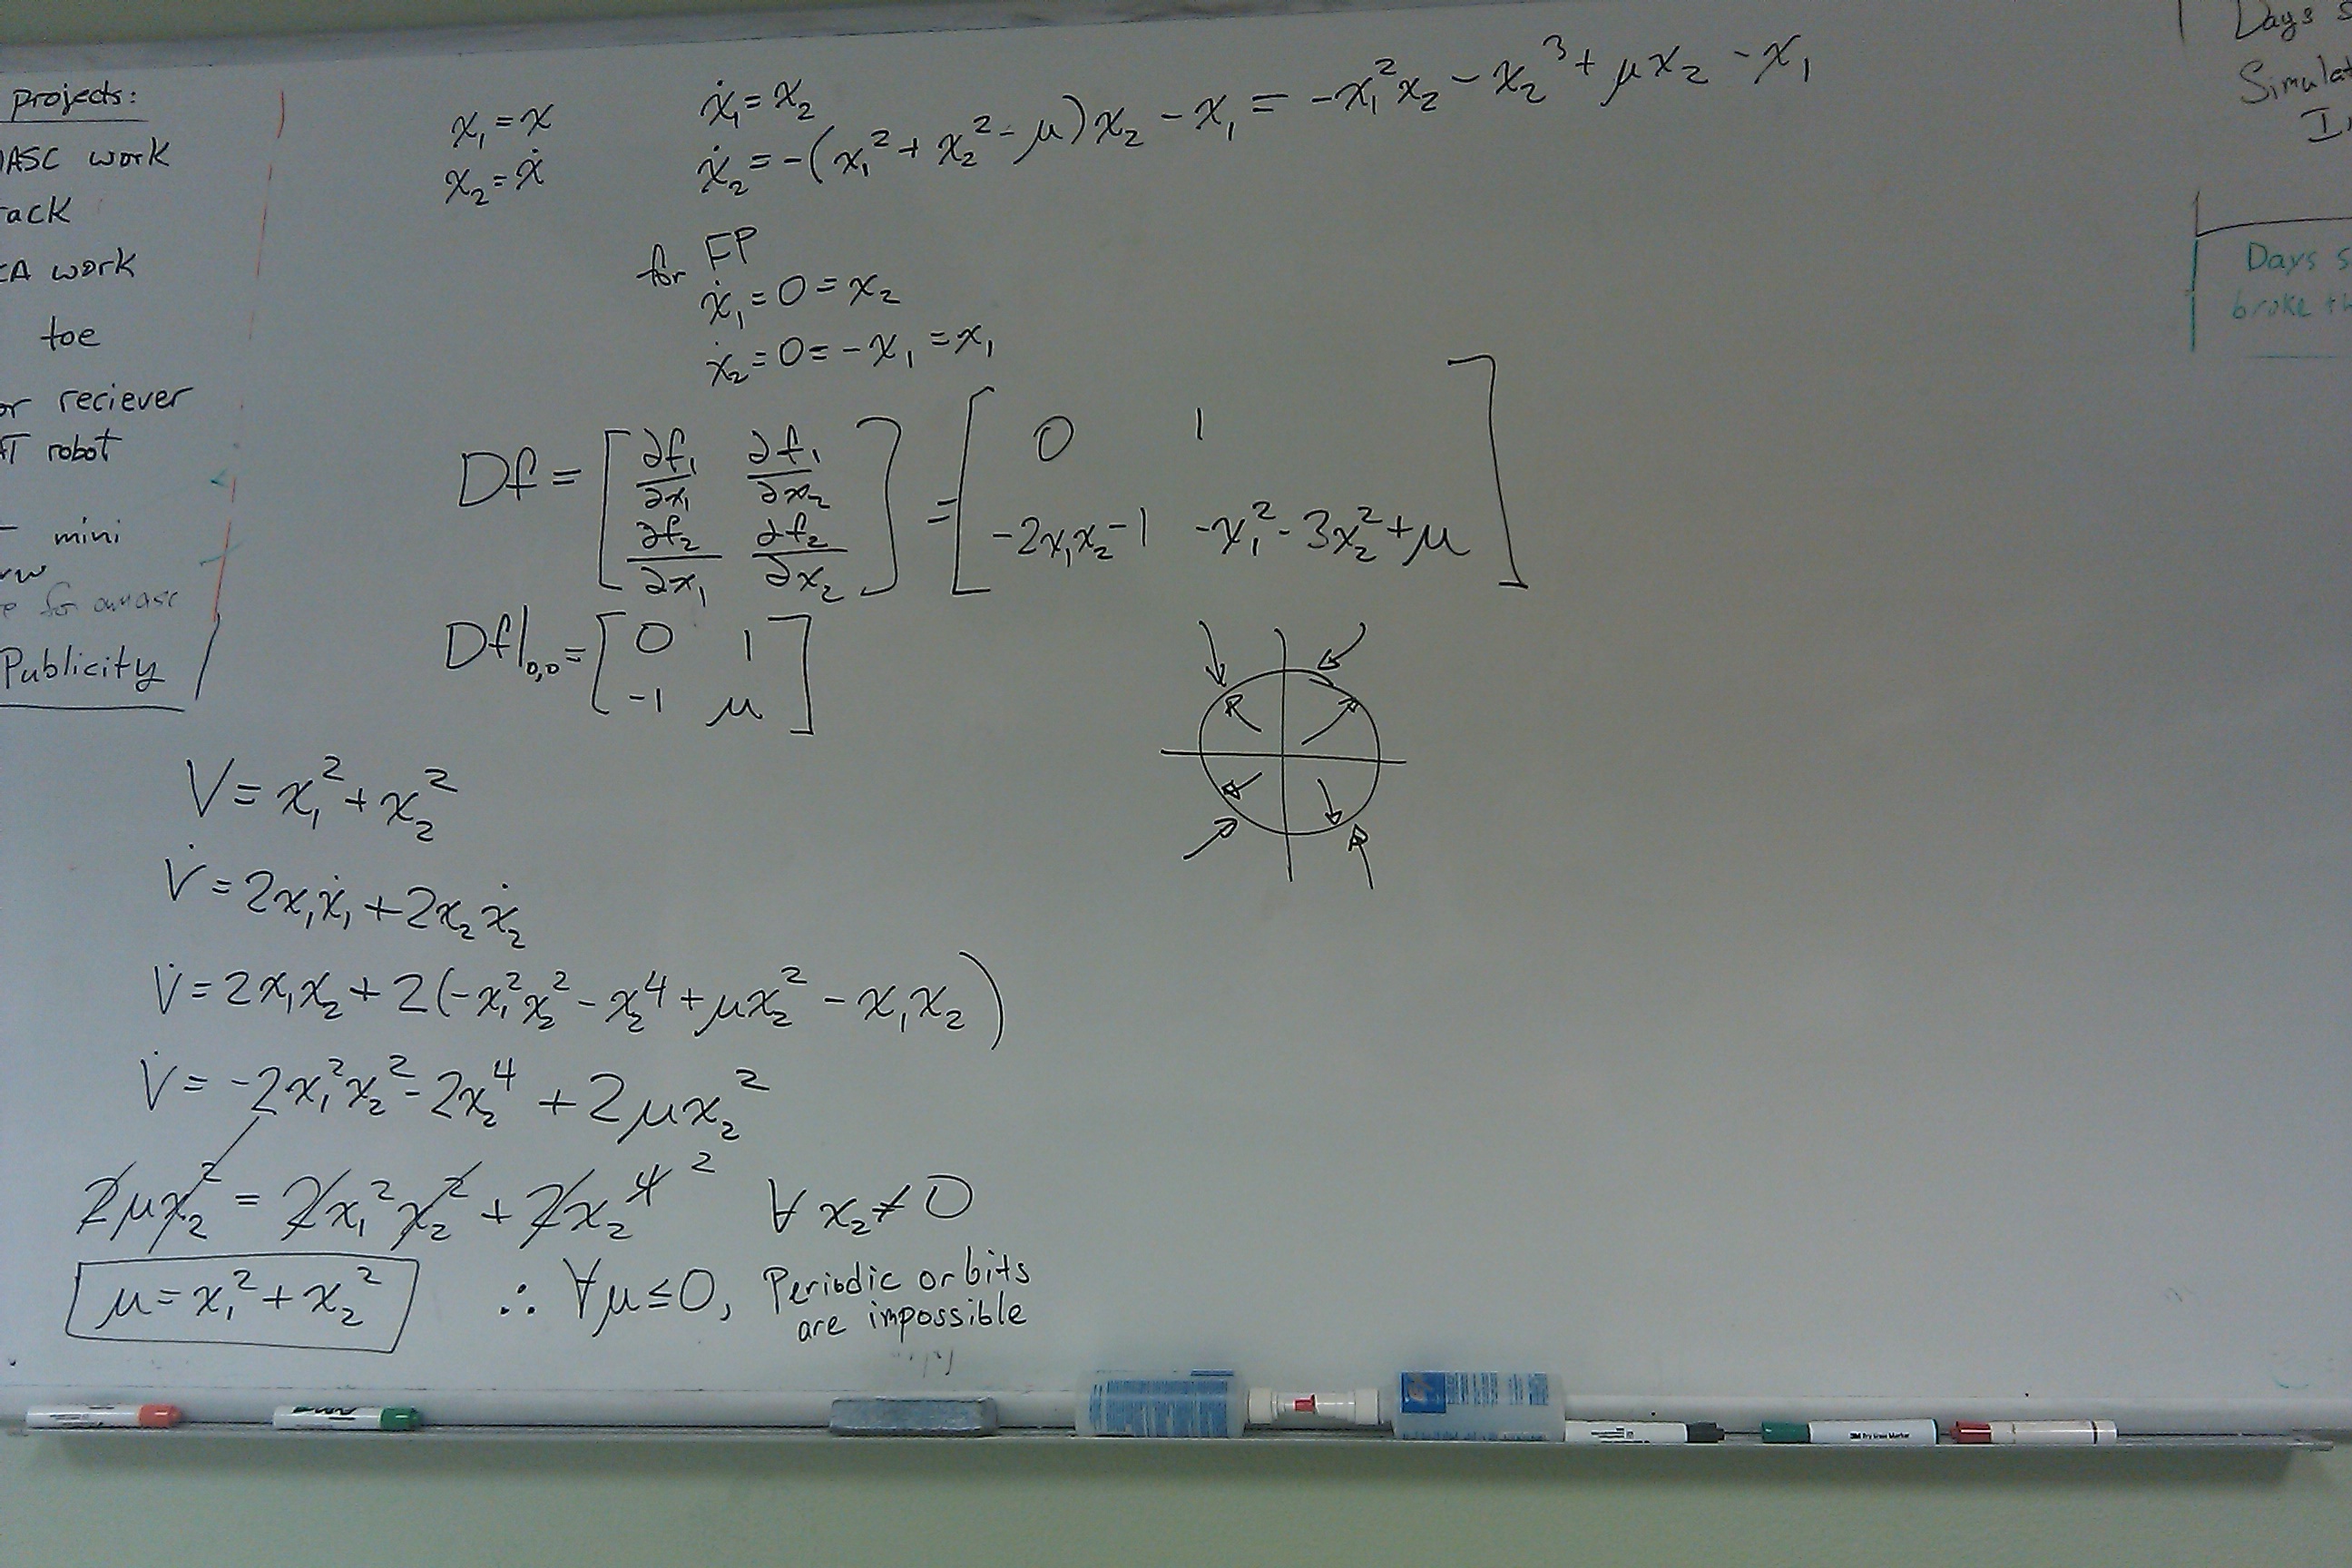 projects:
work
work
toe
reciever
robot
mini
for
Publicity
x₁ = x
x₂ = ẋ
ẋ₁ = x₂
ẋ₂ = -(x₁² + x₂² - μ)x₂ - x₁ = -x₁²x₂ - x₂³ + μx₂ - x₁
for FP
ẋ₁ = 0 = x₂
ẋ₂ = 0 = -x₁ = x₁
Df = [∂f₁/∂x₁ ∂f₁/∂x₂
∂f₂/∂x₁ ∂f₂/∂x₂] = [0 1
-2x₁x₂-1 -x₁² - 3x₂² + μ]
Df|₀,₀ = [0 1
-1 μ]
V = x₁² + x₂²
V̇ = 2x₁ẋ₁ + 2x₂ẋ₂
V̇ = 2x₁x₂ + 2(-x₁²x₂² - x₂⁴ + μx₂² - x₁x₂)
V̇ = -2x₁²x₂² - 2x₂⁴ + 2μx₂²
2μx₂² = 2x₁²x₂² + 2x₂⁴ ² ∀ x₂ ≠ 0
μ = x₁² + x₂² ∴ ∀μ ≤ 0, Periodic orbits
are impossible
Days
Days
broke